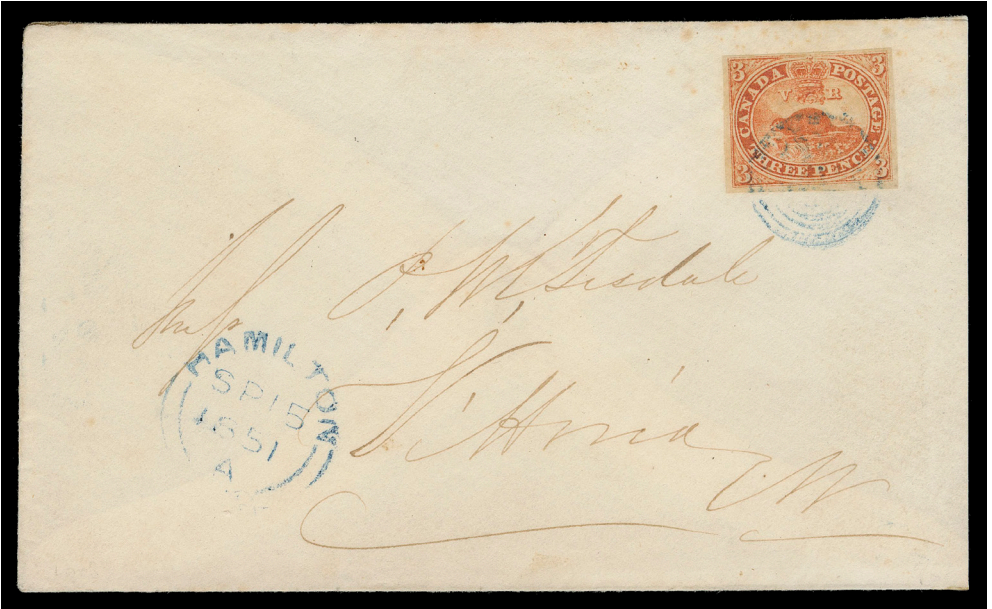 3 3
CANADA POSTAGE
V R
THREE PENCE
3 3
Miss J. M. Tisdale
Vittoria
HAMILTON
SP 15
1851
A